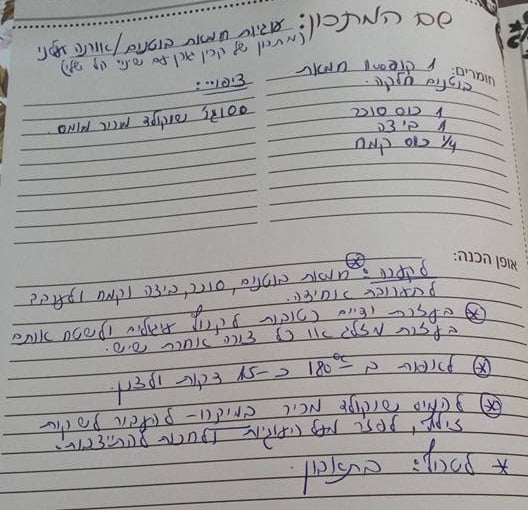 שם המתכון: עוגיות חמאת בוטנים/אורנה ועלני
(מתכון של קרין גורן עם שינוי קל שלי)
חומרים: 1 קופסת חמאת
בוטנים חלקה.
1 כוס סוכר
1 ביצה
1/4 כוס קמח
ציפוי:
100 גר' שוקולד מריר מומס.
אופן הכנה:
לקערה: חמאת בוטנים, סוכר, ביצה וקמח ולערבב
לתערובת אחידה.
בעזרת ידיים רטובות לקרוץ עיגולים ולשטח אותם
בעזרת מזלג או כל צורה אחרת שיש.
לאפות ב 180° כ-15 דקות ולצנן.
להמיס שוקולד מריר במיקרו- להעביר לשקית
זילוף, לפזר מעל העוגיות ולחכות להתייצבות.
* לטרוף! בתאבון.